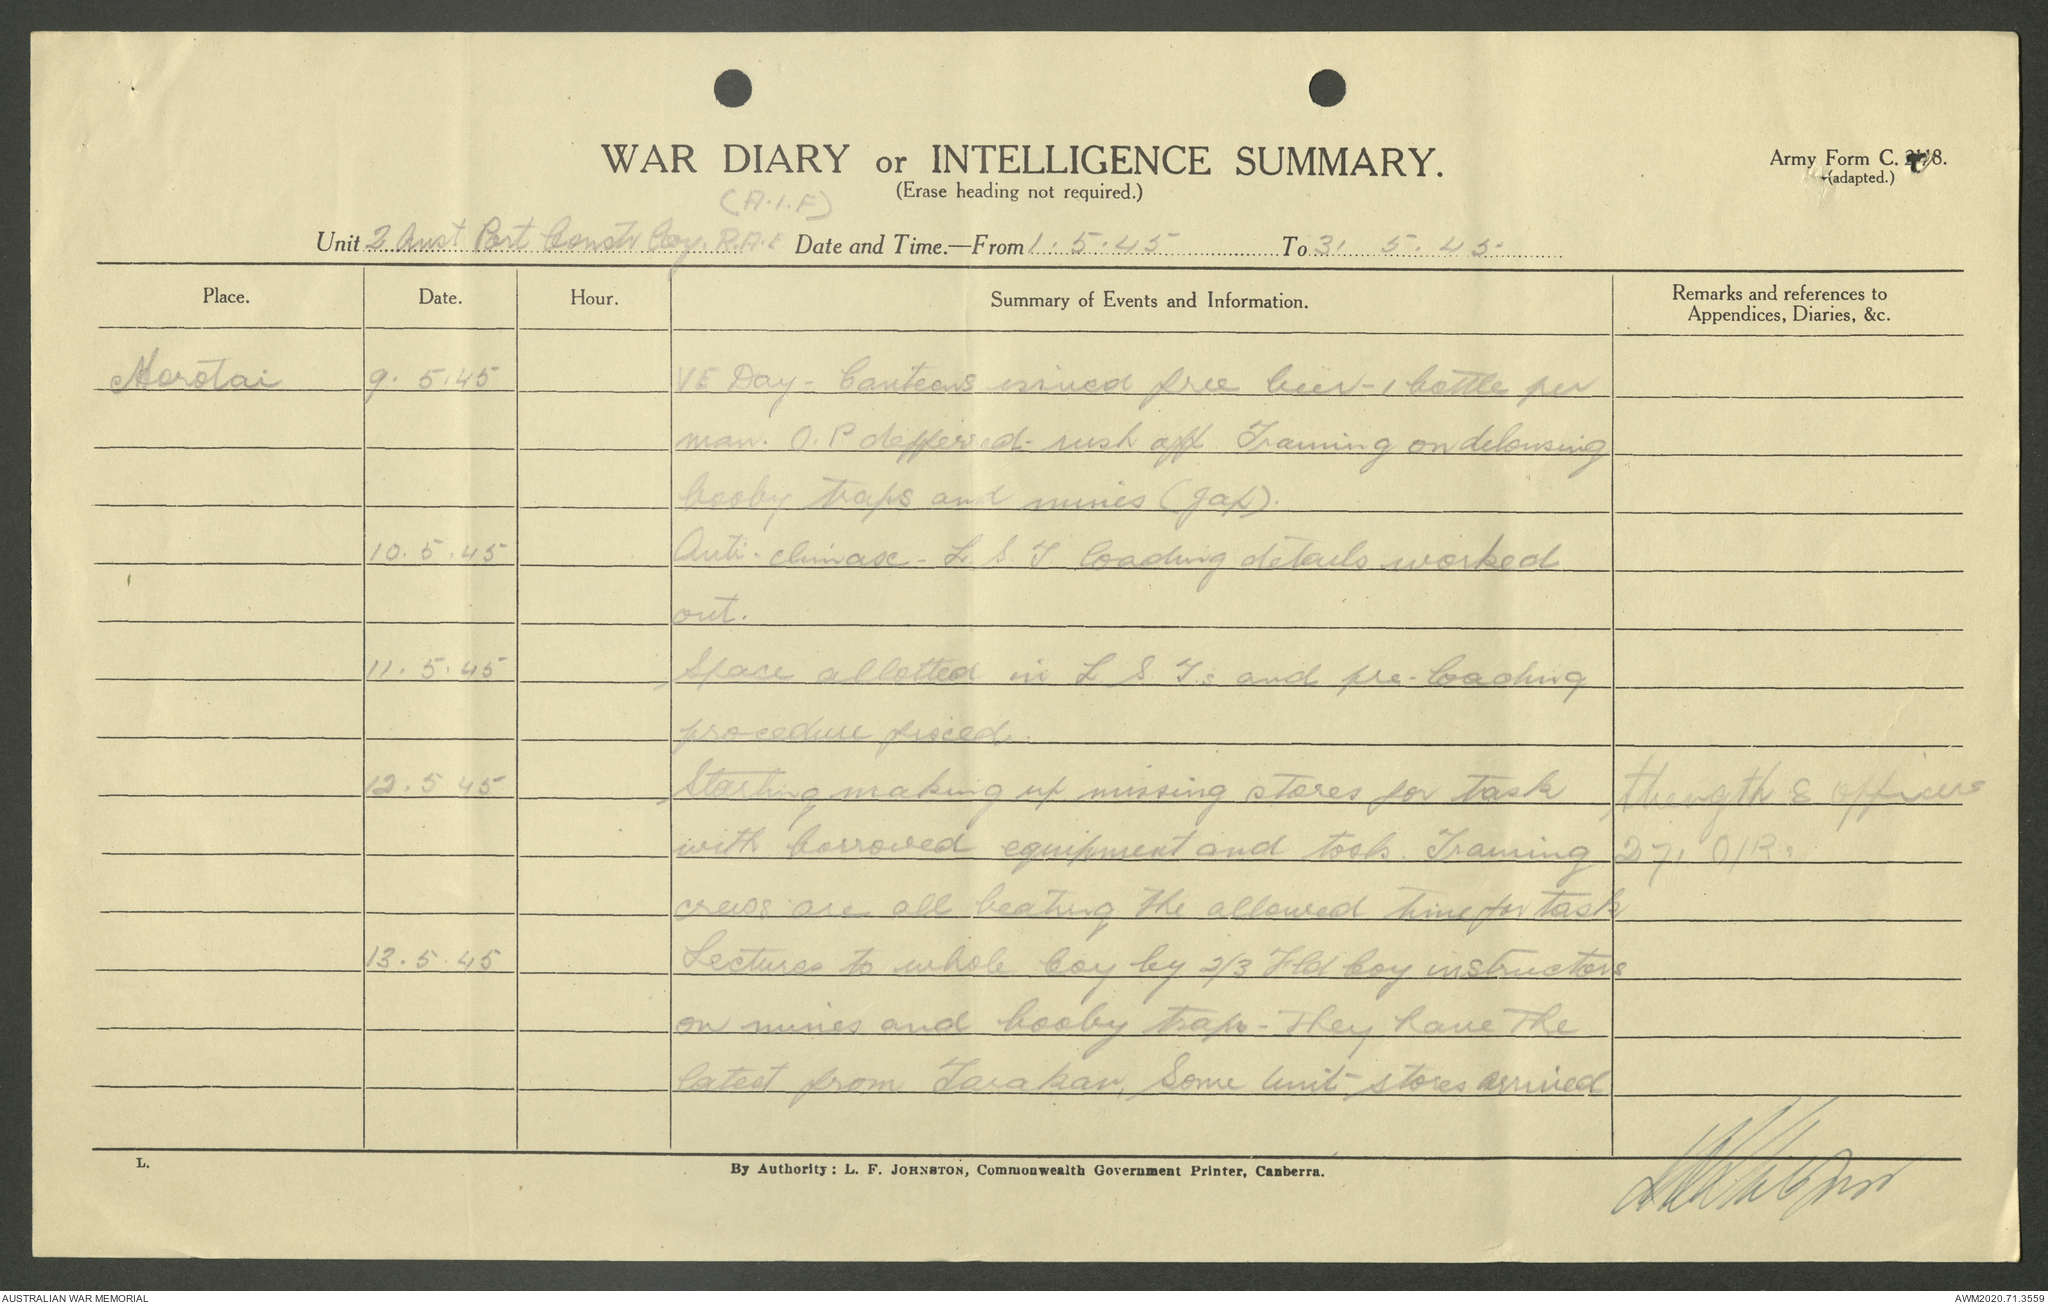 WAR DIARY or INTELLIGENCE SUMMARY.
Army Form C. 2118.
(adapted.)
(Erase heading not required.)
(A.I.F)
Unit 2 Aust Port Constr Coy. R.A.E Date and Time.—From 1.5.45 To 31 5.45.
Place. Date. Hour. Summary of Events and Information. Remarks and references to
Appendices, Diaries, &c.
Morotai 9.5.45 VE Day - Canteens issued free beer - 1 bottle per
man. O.P deffered - rush off Training on delousing
booby traps and mines (Jap).
10.5.45 Anti-climax - L.S.T loading details worked
out.
11.5.45 Space allotted in L S T.s and pre-loading
procedure fixed.
12.5.45 Starting making up missing stores for task
with borrowed equipment and tools. Training
crews are all beating the allowed time for task
13.5.45 Lectures to whole Coy by 2/3 Fld Coy instructors
on mines and booby traps - They have the
latest from Tarakan, Some Unit stores arrived
thength 8 officers
271 O/Rs
L.
By Authority: L. F. JOHNSTON, Commonwealth Government Printer, Canberra.
AUSTRALIAN WAR MEMORIAL
AWM2020.71.3559